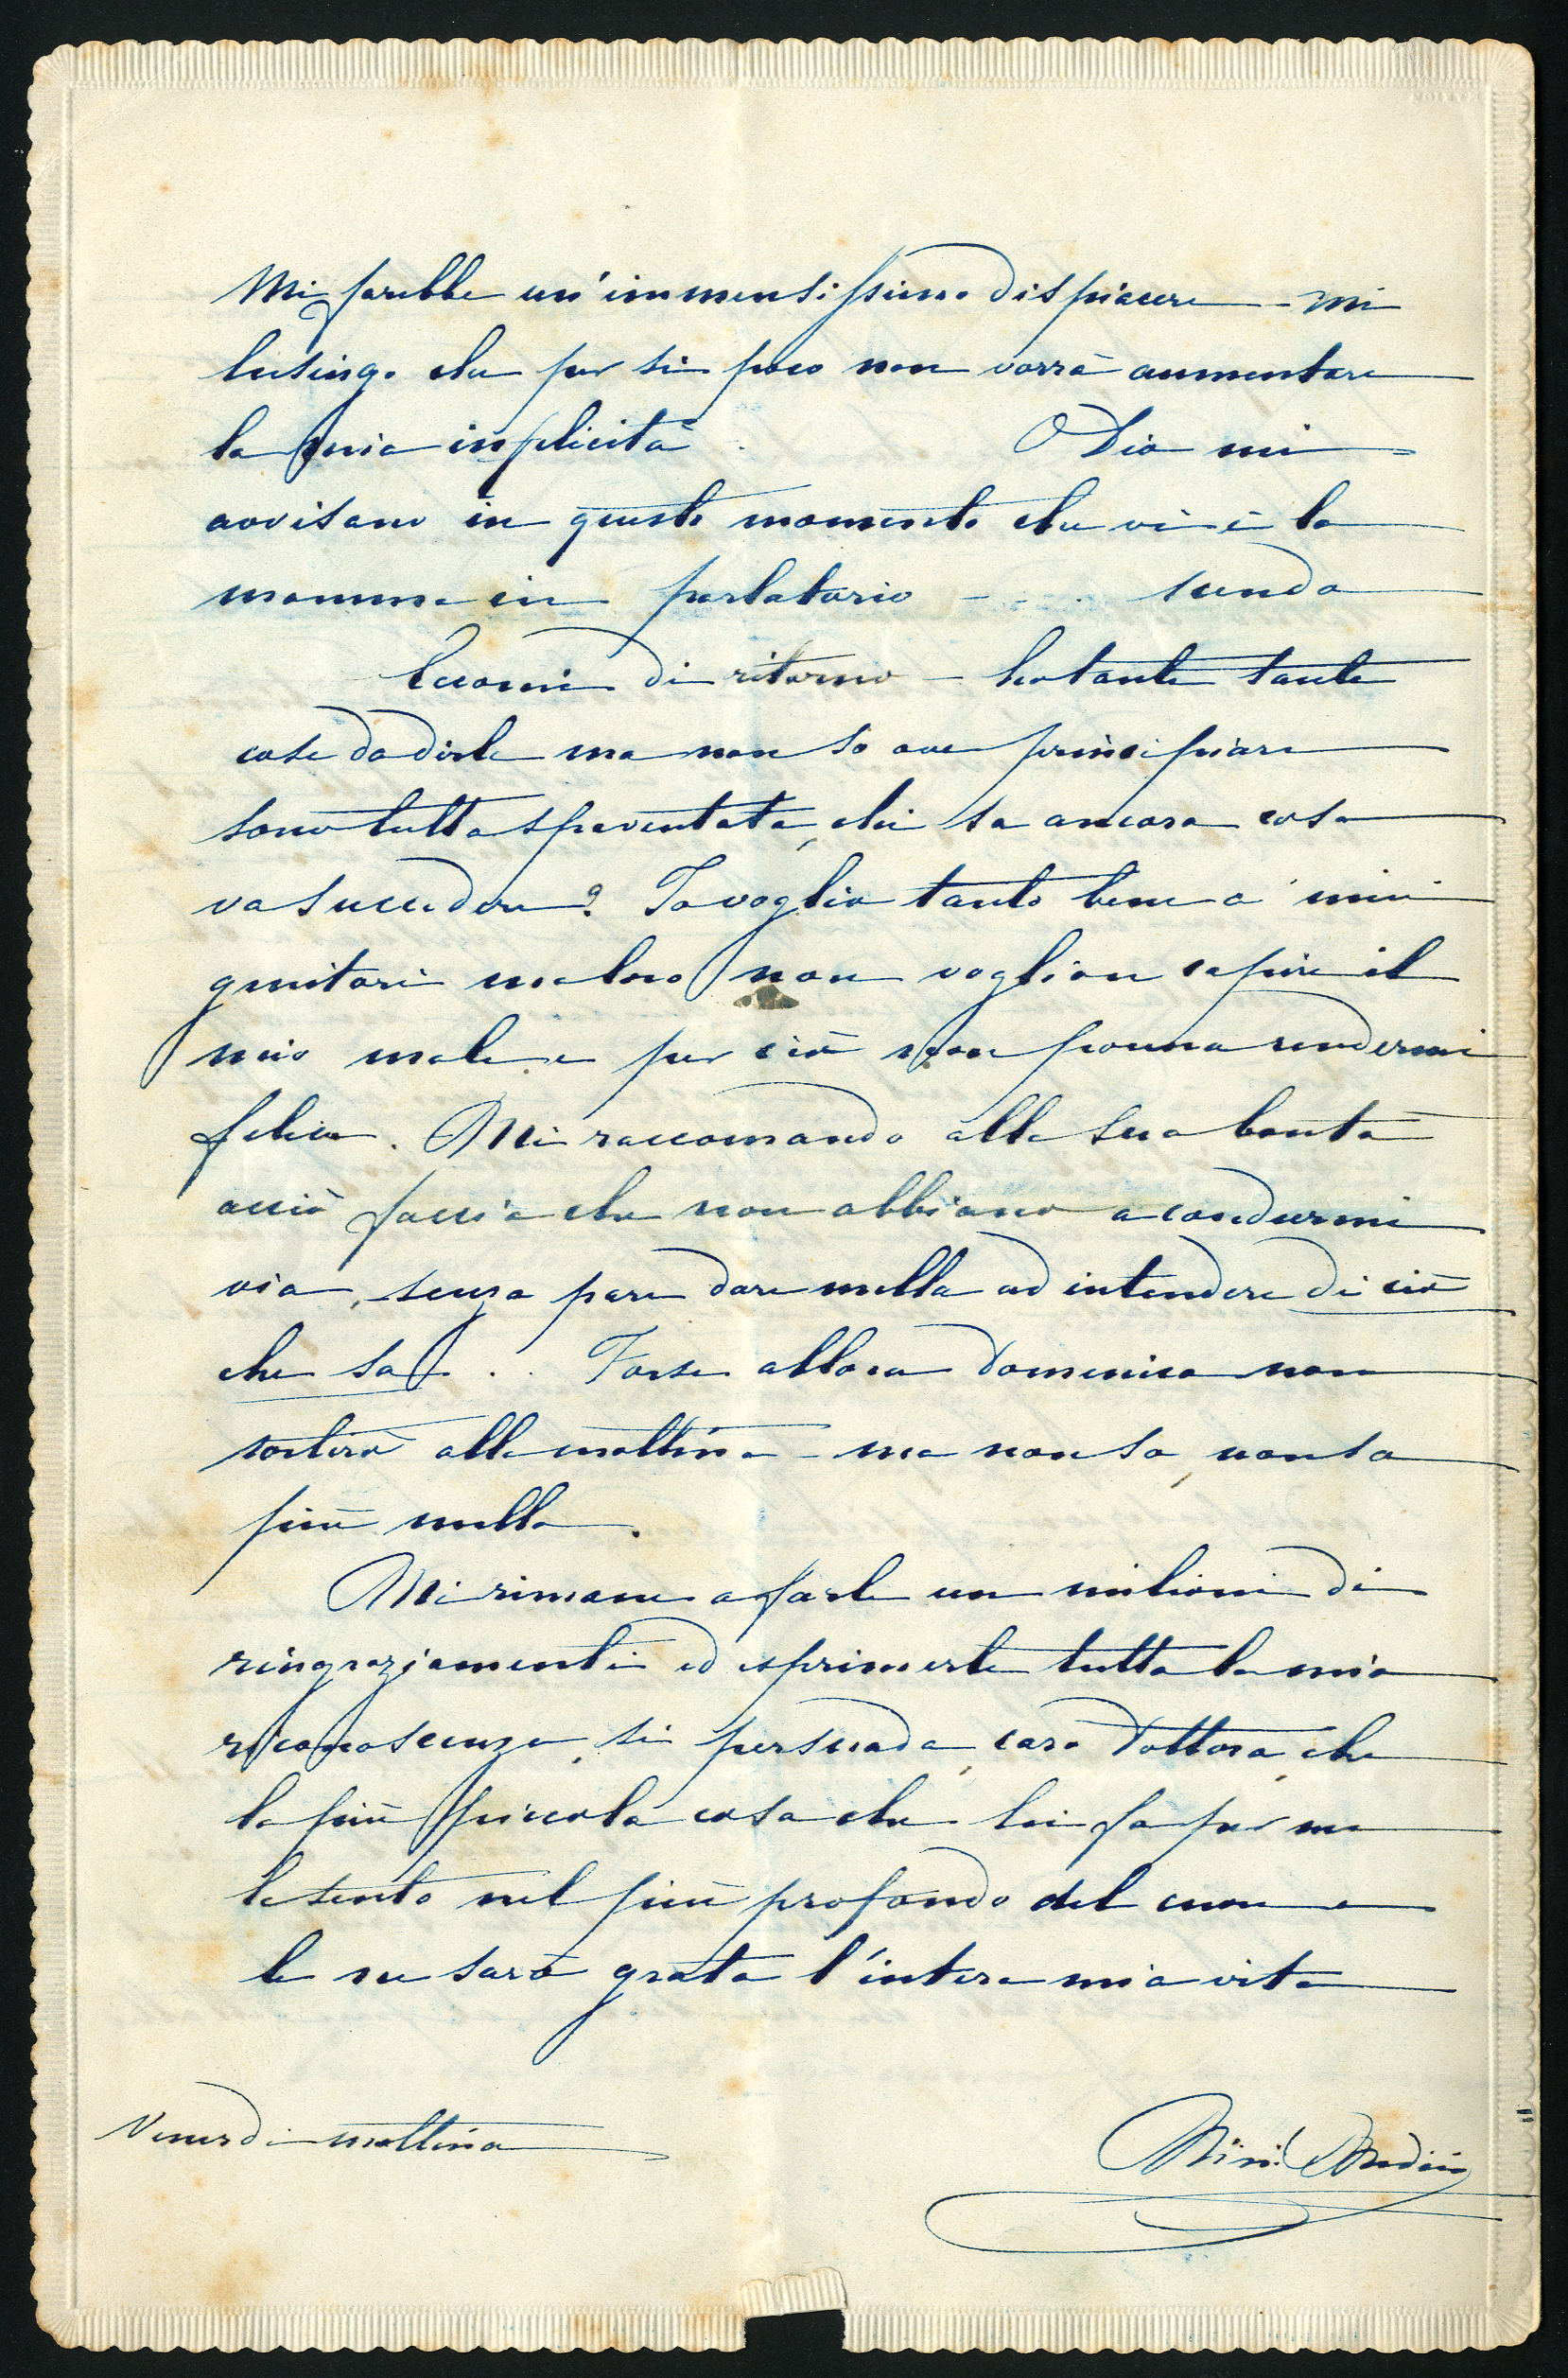 Mi farebbe un'immensissimo dispiacere - mi
lusingo che per si poco non vorrà aumentare
la mia infelicità. O Dio mi
avvisano in questo momento che vi è la
mamma in parlatorio - . . . scendo
Eccomi di ritorno - ho tante tante
cose da dirle ma non so ove principiare
sono tutta spaventata, chi sa ancora cosa
va succedere? Io voglio tanto bene a' miei
genitori ma loro non voglion capire il
mio male e per ciò non ponno rendermi
felice. Mi raccomando alla sua bontà
acciò faccia che non abbiano a condurmi
via, senza pare dare nulla ad intendere di ciò
che sa . . . Forse allora Domenica non
sortirò alla mattina - ma non so, non so
più nulla.
Mi rimane a farle un milione di
ringraziamenti ed esprimerle tutta la mia
riconoscenza, si persuada, caro Dottore, che
la più piccola cosa che lei fa per me
la sento nel più profondo del cuore e
le ne sarò grata l'intera mia vita
Venerdi mattina